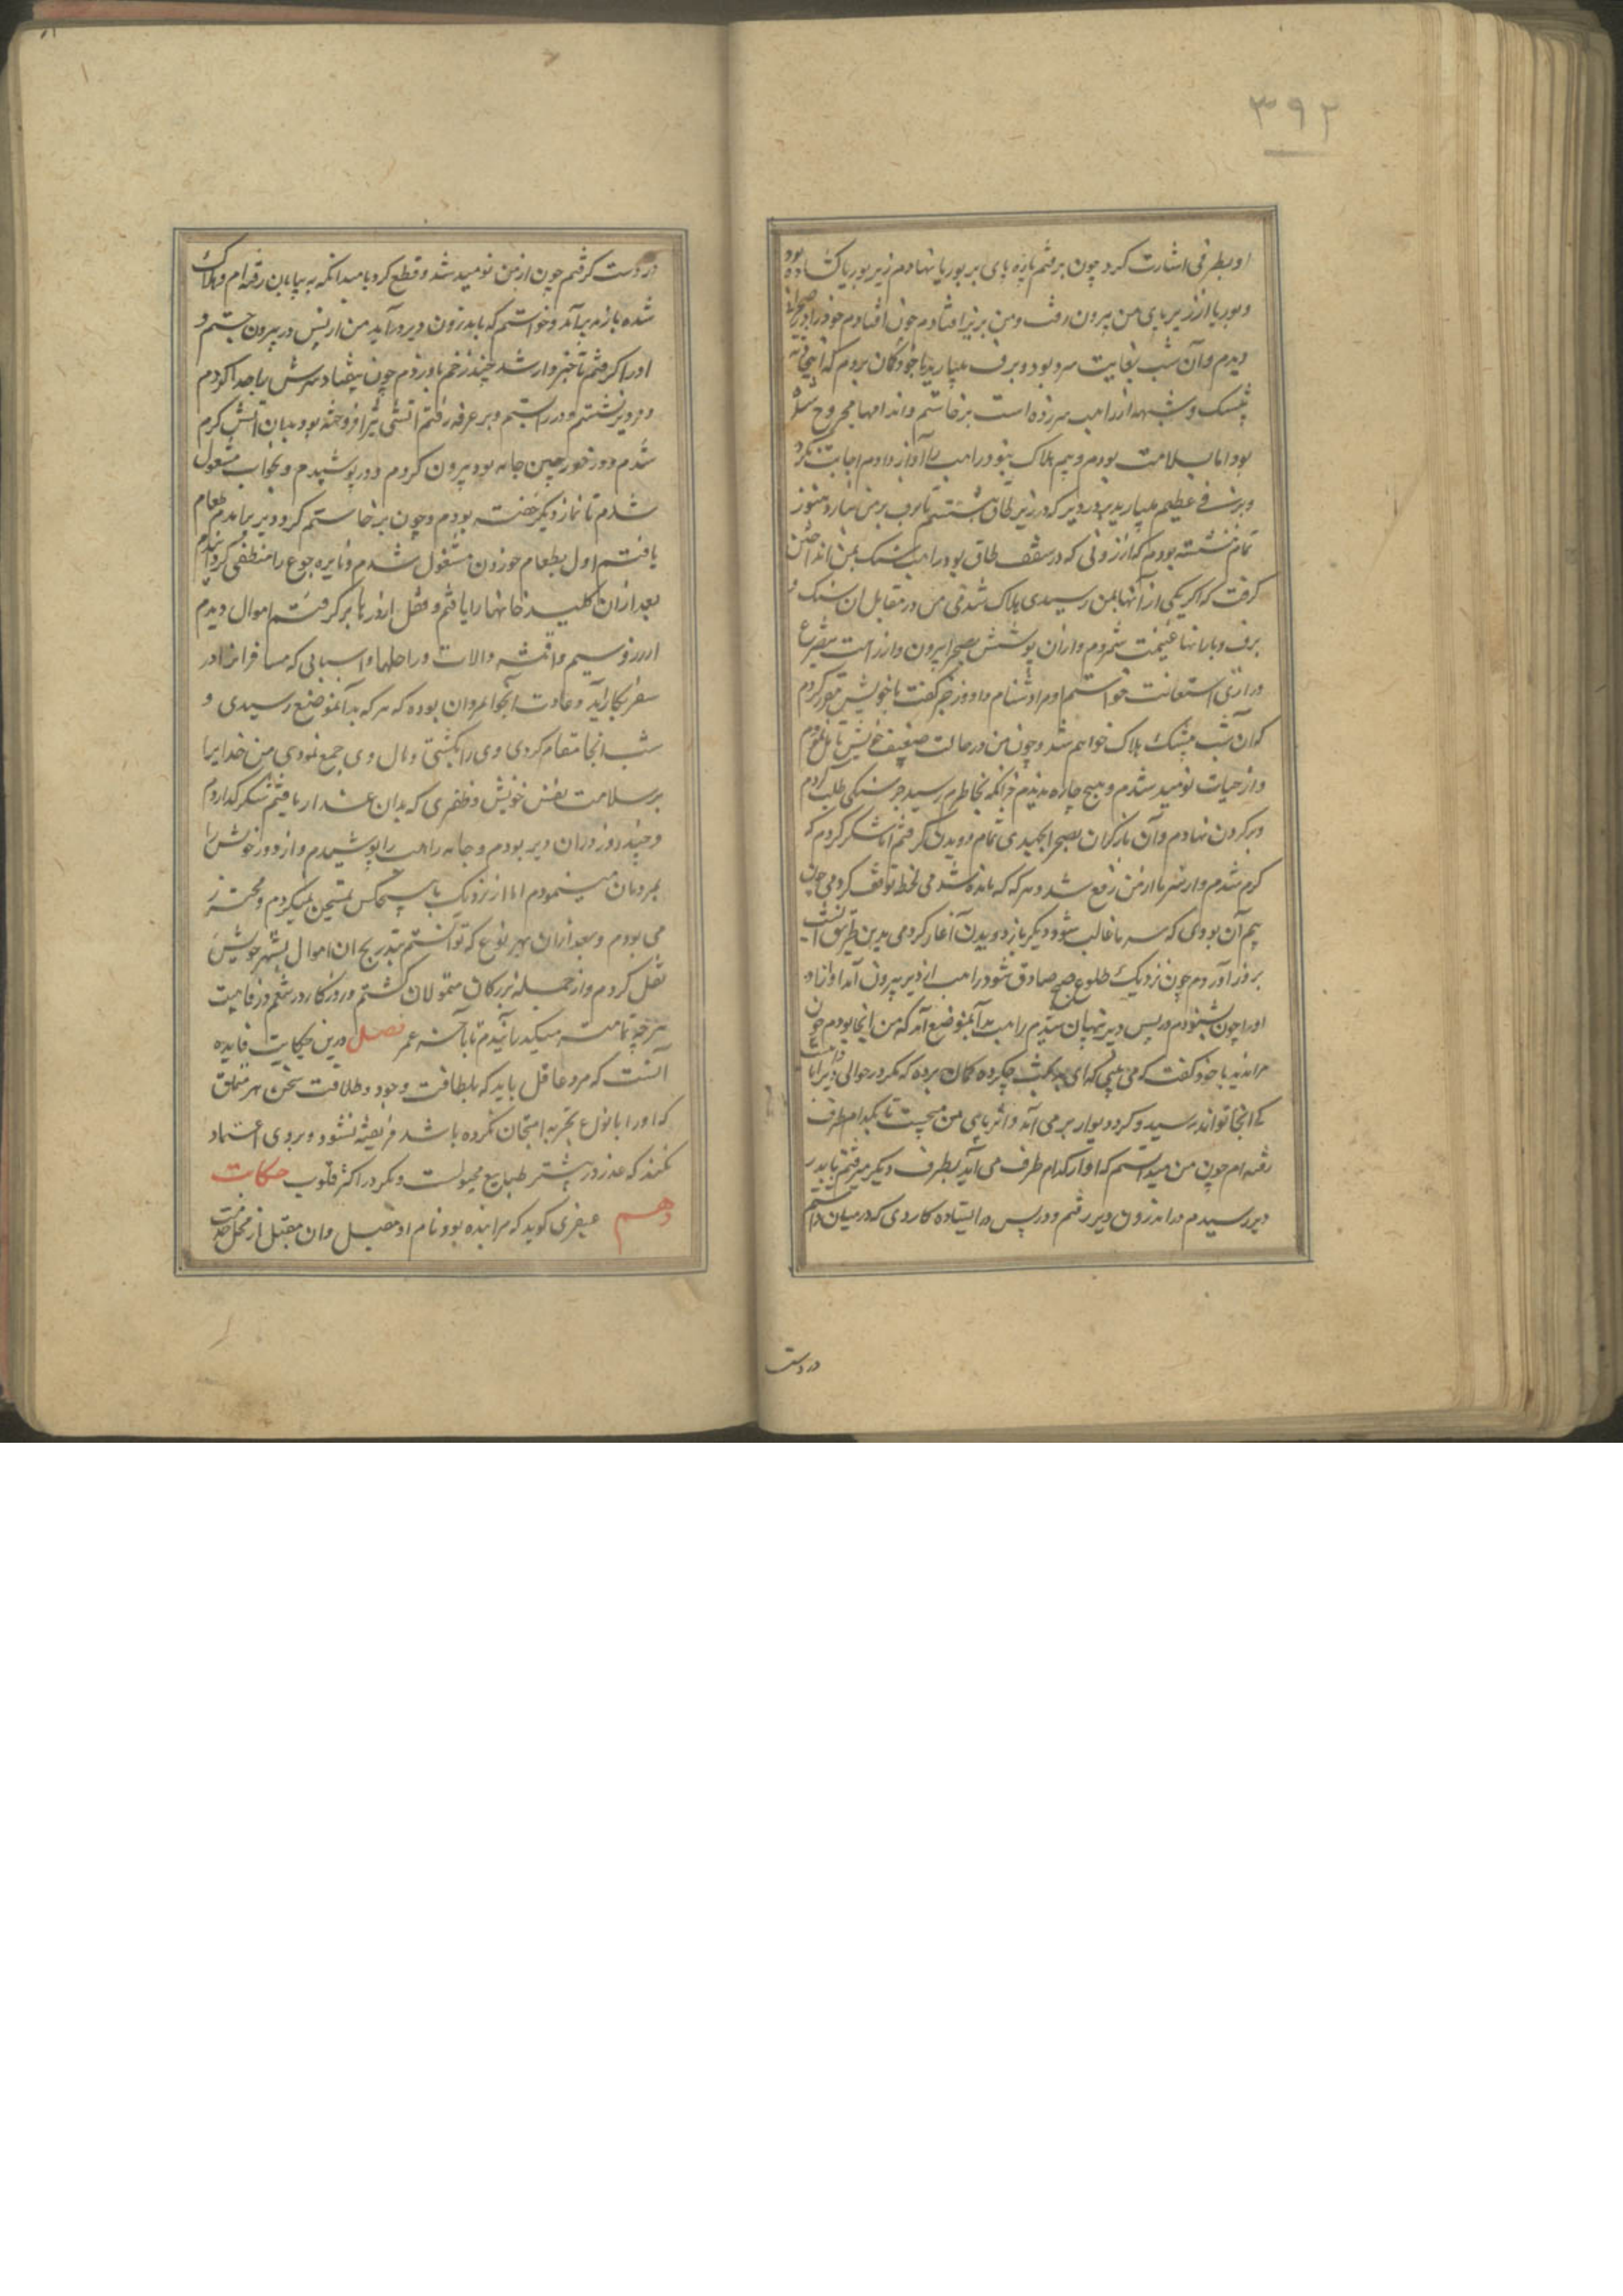 ۳۹۲
او بطرفی اشارت کرد چون برفتم پاره پای بر بوریا نهادم زیر بوریا کشاده بود
و بوریا از زیر پای من بیرون رفت و من بزیر افتادم چون افتادم خود را در صحرائی
دیدم و آن شب بغایت سرد بود و برف میبارید با خود گمان بردم که این خیانت
بیشک و شبهه از راهب سر زده است برخاستم و اندامها مجروح شده
بود اما بسلامت بودم و بیم هلاک نبود راهب را آواز دادم اجابت نکرد
و برفی عظیم میبارید بدر دیر که در زیر طاق بنشستم تا برف بر من نبارد هنوز
تمام ننشسته بودم که از روزنی که در سقف طاق بود راهب سنک بمن انداختن
کرفت که اکر یکی از آنها بمن رسیدی هلاک شدمی من در مقابل ان سنک
برف و بارانها غنیمت شمردم و از ان پوشش بصحرا بیرون و از راهب بتضرع
و زاری استعانت خواستم او مرا دشنام داد و زجر کفت با خویش مقرر کردم
که آن شب بیشک هلاک خواهم شد و چون من در حالت ضعیف خویش تامل نمودم
و از حیات نومید شدم و هیچ چاره ندیدم جز انکه بخاطرم رسید خرسنکی طلب کردم
و بر کردن نهادم و آن بار کران بصحرا بجدی تمام دویدن کرفتم تا کرم
کرم شدم و اثر سرما از من رفع شد و هر که که مانده شدمی لحظه توقف کردمی چون
بیم آن بودی که سرما غالب شود دیکر باز دویدن آغاز کردمی بدین طریق آن شب
بروز آوردم چون نزدیک طلوع صبح صادق شد راهب از دیر بیرون آمد آواز در
او را چون شنودم در پس دیر پنهان شدم راهب بدانموضع آمد که من آنجا بودم چون
مرا ندید با خود کفت که می بینی که ای بدبخت چکرده کمان برده که مکر در حوالی دیر
بآنجا تواند رسید و کرد دیوار بر می آمد و اثر پای من میجست تا بکدام طرف
رفته ام چون من میدانستم که او از کدام طرف می آید بطرف دیکر میرفتم تا بدر
دیر رسیدم در اندرون دیر رفتم و در پس در ایستاده کاردی که در میان داشتم
در دست
در دست کرفتم چون از من نومید شد و قطع کرد بامید انکه به بیابان رفته ام و هلاک
شده باز بدیر آمد و خواستم که باندرون دیر در آید من از پس در بیرون جستم و
او را کرفتم تا خبردار شد چند زخم باو زدم چون بیفتاد سرش را جدا کردم
و در دیر نشستم و در ببستم و بر غرفه رفتم آتشی تیز افروخته بود بدان آتش کرم
شدم و در خورجین جامه بود بیرون کردم و در پوشیدم و بخواب مشغول
شدم تا نماز دیکر خفته بودم و چون برخاستم کرد دیر برآمدم طعام
یافتم اول بطعام خوردن مشغول شدم و نایره جوع را منطفی کردانیدم
بعد از ان کلید خانها را یافتم و قفل از درها بر کرفتم اموال دیدم
از زر و سیم و اقمشه و الات و راحلها و اسبابی که مسافرانرا در
سفر بکار آید و عادت آنجوانمردان بوده که هر که بدانموضع رسیدی و
شب آنجا مقام کردی وی را بکشتی و مال وی جمع نمودی من خدایرا
بر سلامت نفس خویش و ظفری که بدان غدار یافتم شکر کذاردم
و چند روز در ان دیر بودم و جامه راهب را پوشیدم و از دور خویش را
بمردمان مینمودم اما از نزدیک با هیچکس سخن نمیکردم و محترز
می بودم و بعد از ان بهر نوع که توانستم بتدریج ان اموال بشهر خویش
نقل کردم و از جمله بزرکان متمولان کشتم و روزکار در نعم و رفاهیت
هرچه تمامتر میکذرانیدم تا بآخر عمر فصل درین حکایت فایده
آنست که مرد عاقل باید که بلطافت وجود و طلاقت سخن هر متملق
که او را بانواع تجربه امتحان نکرده باشد فریفته نشود و بر وی اعتماد
نکند که غدر در بیشتر طبایع مجبولست و مکر در اکثر قلوب حکایت
دهم عیفری کوید که مرا بنده بود نام او مقبل و ان مقبل از محل خدمت